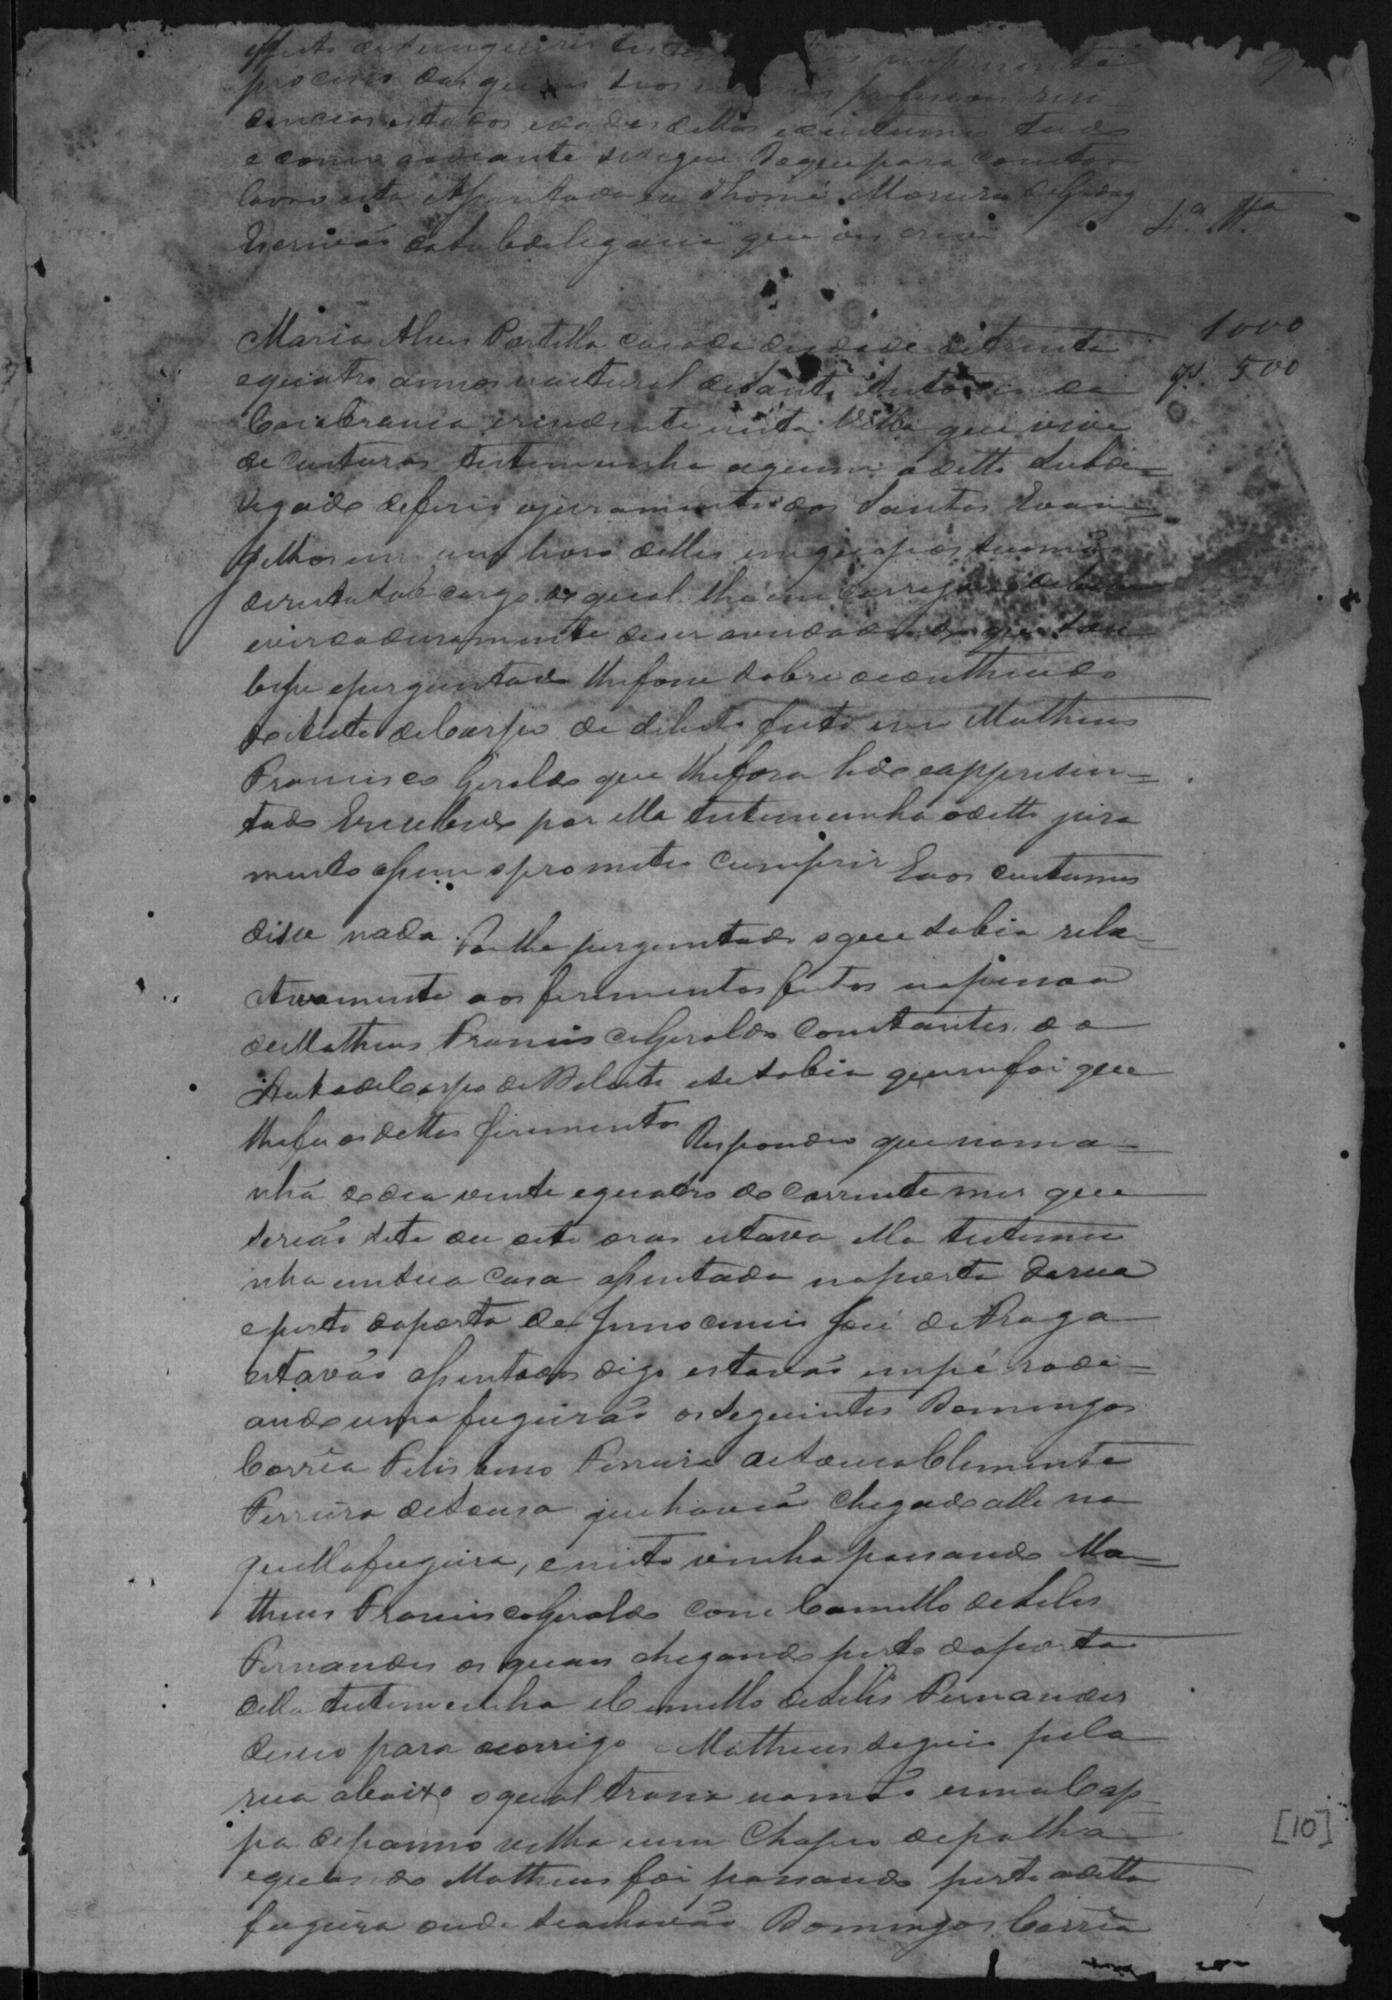 effeito de serem inqueridas testemunhas no presente
processo das quaes seos nomes profissoens resi-
dencias estados idades dittos e custumes tudo
e como ao diante se segue Do que para constar
lavro esta Assentada eu Thomé Moreira
Escrivão da Subdelegacia que os crevi
4.ª Tt.ª
Maria Alves Portella casada de idade de trinta
1000
e quatro annos natural de Santo Antonio da
qs. 500
Casa branca rezidente nesta Villa que vive
de custuras testemunha a quem o ditto Subde=
legado deferio o juramento dos Santos Evan=
gelhos em um livro delles em que apos sua mão
direita sob cargo do qual lhe em carregou de bem
e verdadeiramente dizer averdade do que sou
besse e perguntado lhe fosse sobre o conthiudo
do Auto de Corpo de delicto feito em Matheus
Francisco Geraldo que lhe fora lido e appresen=
tado Recebido por ella testemunha o ditto jura
mento assim o prometeo cumprir Eaos custumes
disse nada. Foi lhe perguntado o que sabia rela=
tivamente aos ferimentos feitos na pessoa
de Matheus Francisco Geraldo constantes do
Auto de Corpo de Delicto e se sabia quem foi que
lhe fes os dittos ferimentos Respondeo que na ma=
nhã do dia vinte e quatro do corrente mes que
serião sete ou oito oras estava ella testemu
nha em sua casa assentada na porta da rua
e perto da porta de Innocencio José de Fraga
estavão assentados digo estavão em pé rode=
ando uma fugueirão os seguintes Domingos
Corrêa Felisbino Ferreira de Sousa Clemente
Ferreira de Sousa que havia chegado alli na
quella fugeira, e nisto vinha passando Ma=
theus Francisco Geraldo com Camillo de Lelis
Fernandes os quaes chegando perto da porta
della testemunha e Camillo de Lelis Fernandes
desceo para o corrigo e Matheus seguio pela
rua abaixo o qual trazia na mão uma Cap=
pa de panno velha e um Chapeo de palha
e quando Matheus foi passando perto a ditta
fugeira onde se achavão Domingos Corrêa
[10]